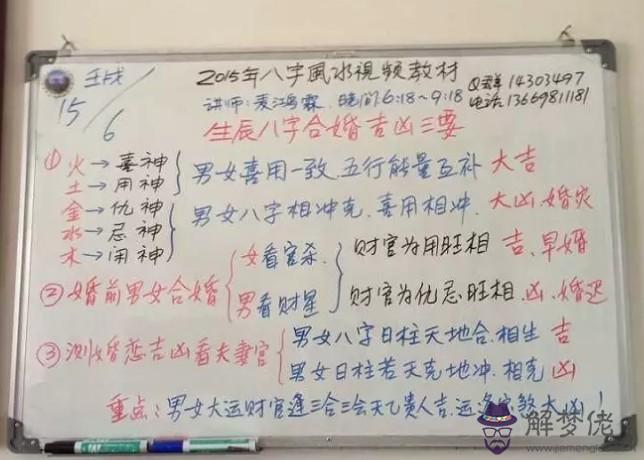 壬戌 2015年八字風水視频教材 Q群14303497
15/6 讲师:麦鸿霖 晚间6:18~9:18 电话:13669811181
生辰八字合婚吉凶三要
① 火→喜神
土→用神 男女喜用一致.五行能量互补 大吉
金→仇神
水→忌神 男女八字相冲克.喜用相冲. 大凶.婚灾
木→闲神
女看官杀. 财官为用旺相 吉.早婚
② 婚前男女合婚
男看财星 财官为仇忌旺相 凶.婚迟
男女八字日柱天地合.相生 吉
③ 测婚恋吉凶看夫妻宫
男女日柱若天克地冲.相克 凶
重点:男女大运财官逢三合三会天乙贵人吉.运逢 煞大凶!
解梦佬